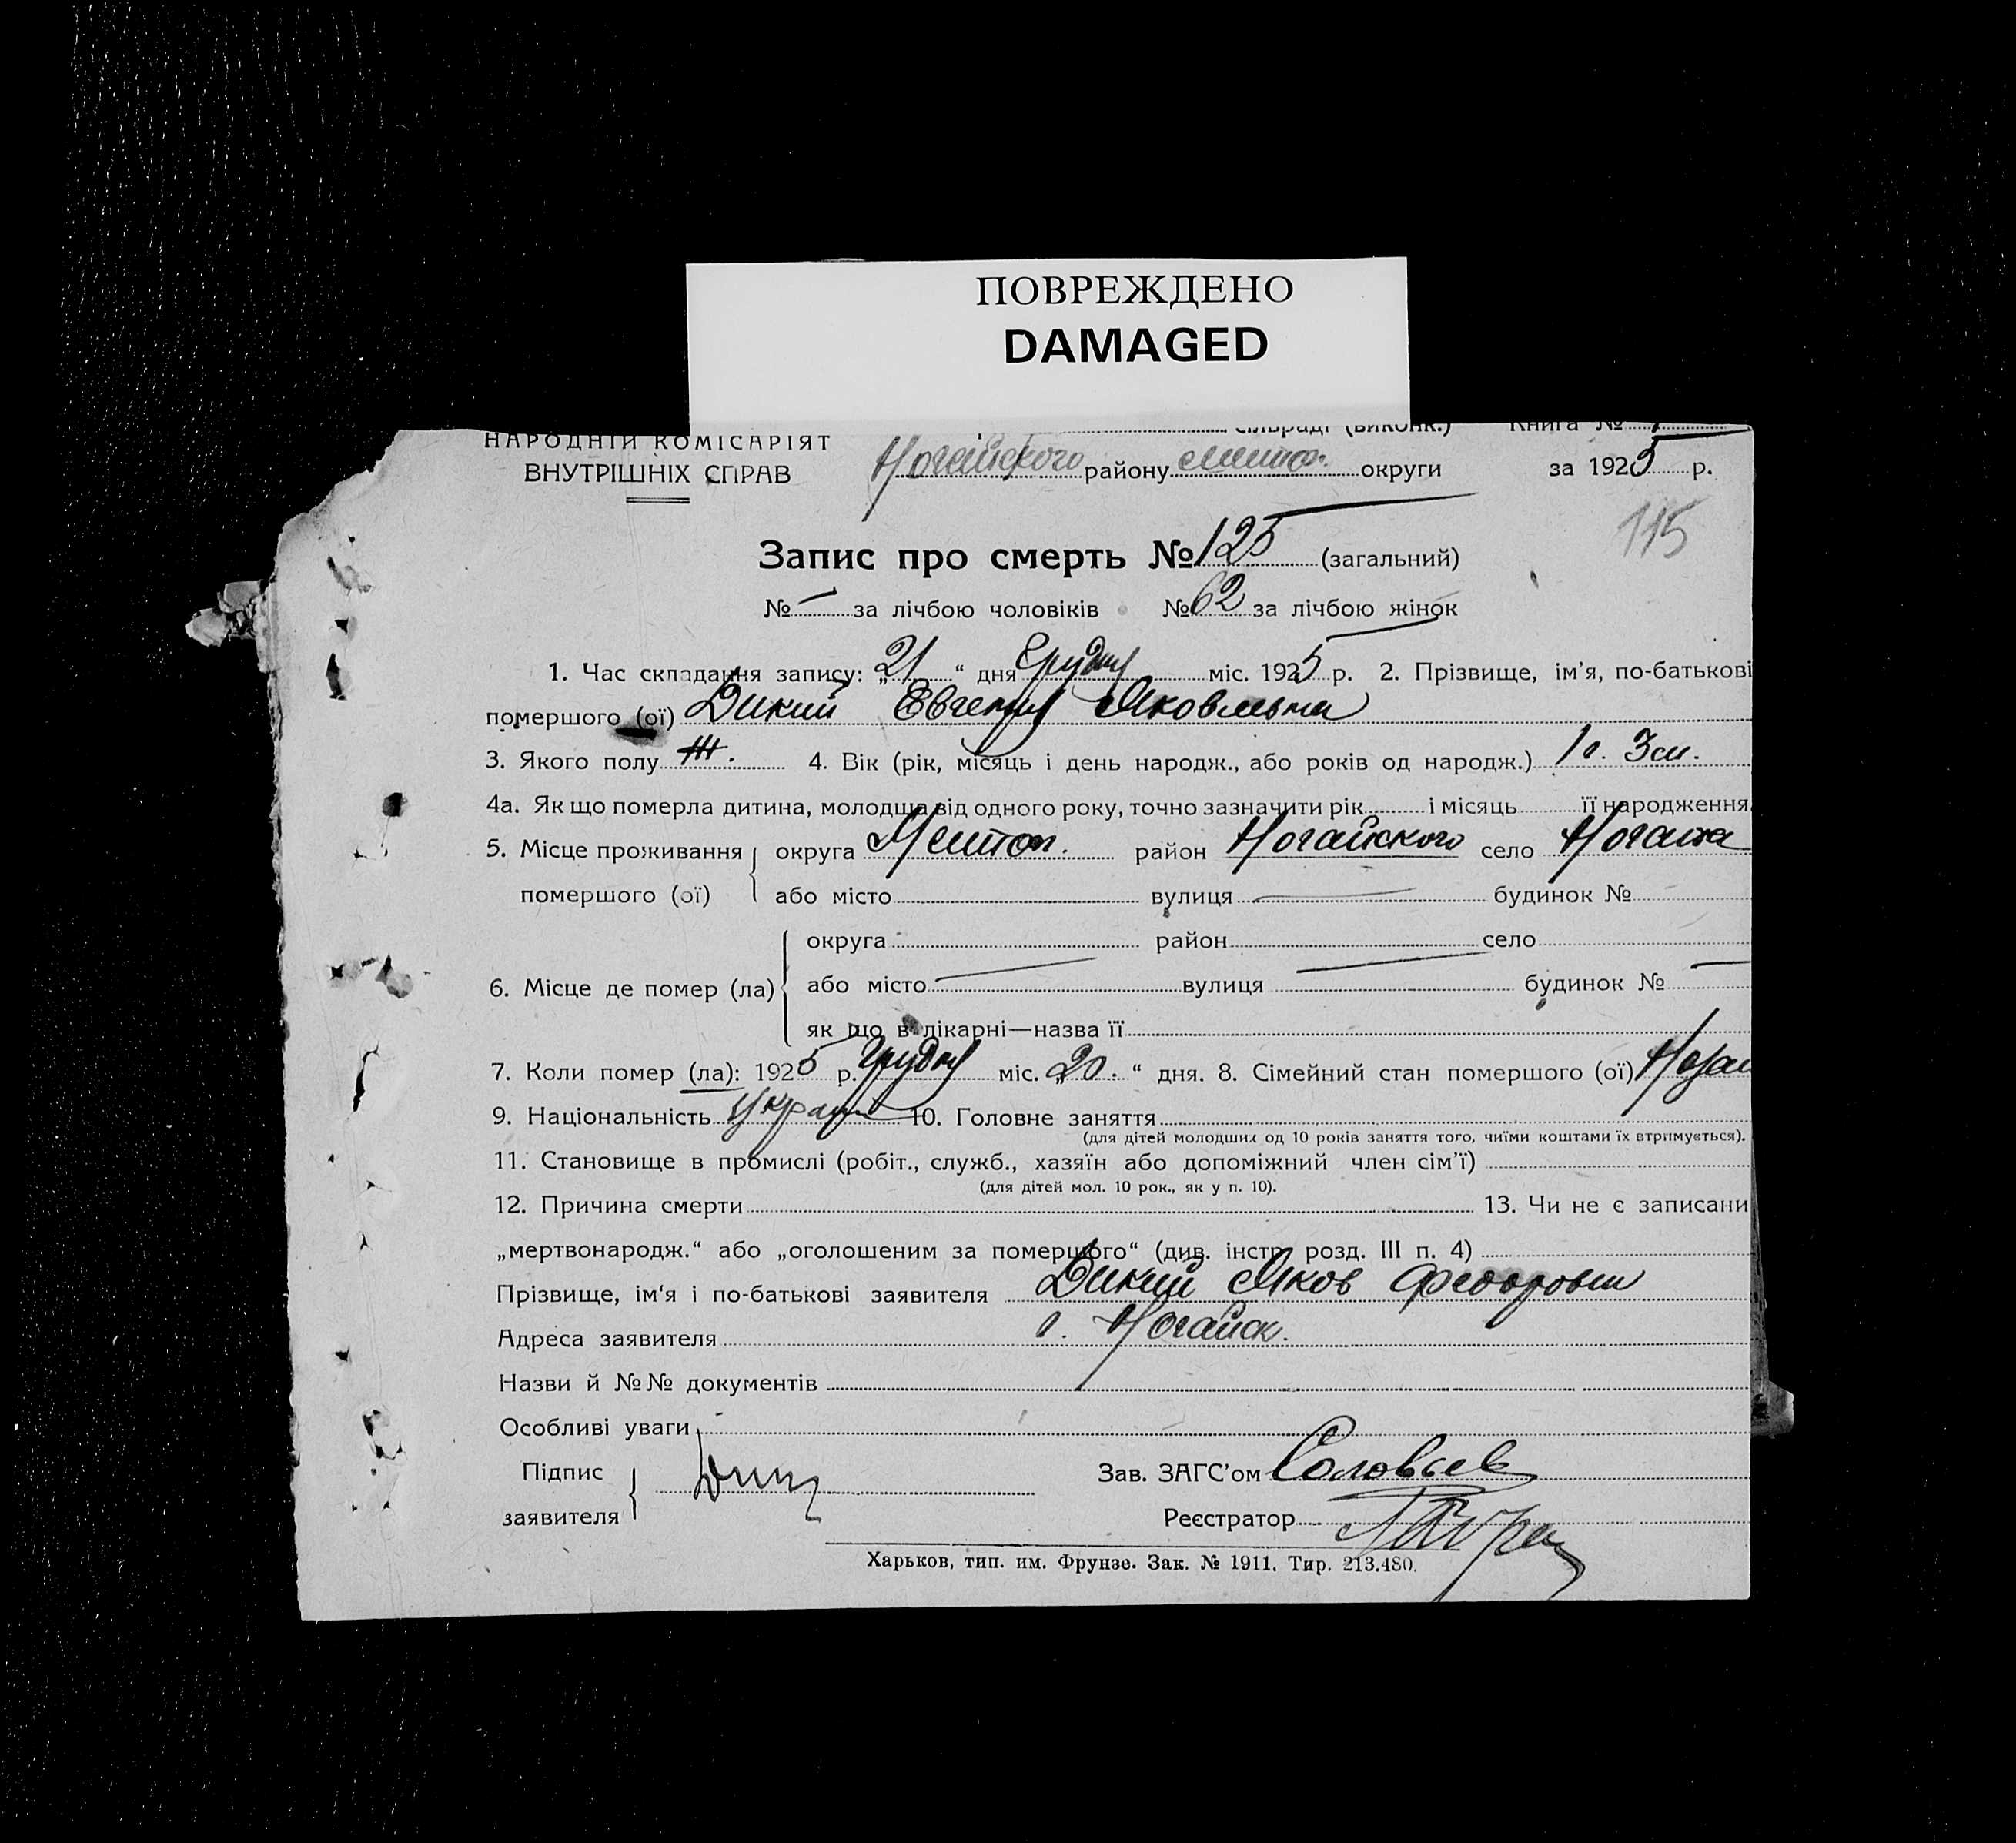 ПОВРЕЖДЕНО
DAMAGED
НАРОДНІЙ КОМІСАРІЯТ
сільраді (виконк.) Книга №
ВНУТРІШНІХ СПРАВ
Ногайского району Мелітоп. округи за 1925 р.
115
Запис про смерть № 125 (загальний)
№ — за лічбою чоловіків № 62 за лічбою жінок
1. Час складання запису: „21“ дня Грудня міс. 1925 р. 2. Прізвище, ім’я, по-батькові
помершого (ої) Дикий Евгения Яковлевна
3. Якого полу Ж. 4. Вік (рік, місяць і день народж., або років од народж.) 1 г. 3 м.
4а. Як що померла дитина, молодша від одного року, точно зазначити рік і місяць її народження
5. Місце проживання округа Мелітоп. район Ногайского село
помершого (ої) або місто вулиця — будинок №
округа район село
6. Місце де помер (ла) або місто — вулиця — будинок № —
як що в лікарні—назва її
7. Коли помер (ла): 1925 р. Грудня міс. „20.“ дня. 8. Сімейний стан помершого (ої)
9. Національність 10. Головне заняття
(для дітей молодших од 10 років заняття того, чиїми коштами їх втримується).
11. Становище в промислі (робіт., служб., хазяїн або допоміжний член сім’ї)
(для дітей мол. 10 рок., як у п. 10).
12. Причина смерти 13. Чи не є записани
„мертвонародж.“ або „оголошеним за помершого“ (див. інстр. розд. III п. 4)
Прізвище, ім‘я і по-батькові заявителя Дикий Яков Федорович
Адреса заявителя г. Ногайск.
Назви й №№ документів
Особливі уваги
Підпис
Зав. ЗАГС’ом Соловьев
заявителя
Реєстратор
Харьков, тип. им. Фрунзе. Зак. № 1911. Тир. 213.480.